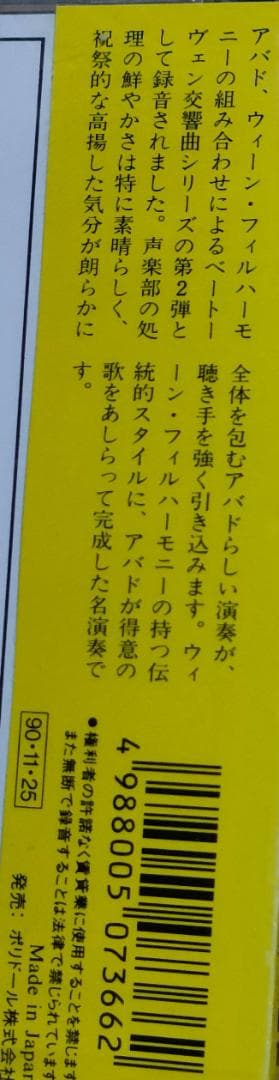 アバド、ウィーン・フィルハーモ
ニーの組み合わせによるベートー
ヴェン交響曲シリーズの第2弾と
して録音されました。声楽部の処
理の鮮やかさは特に素晴らしく、
祝祭的な高揚した気分が朗らかに
全体を包むアバドらしい演奏が、
聴き手を強く引き込みます。ウィ
ーン・フィルハーモニーの持つ伝
統的スタイルに、アバドが得意の
歌をあしらって完成した名演奏で
す。
4 988005 073662
●権利者の許諾なく賃貸業に使用することを禁じます
また無断で録音することは法律で禁じられています
Made in Japan
発売：ポリドール株式会社
90・11・25